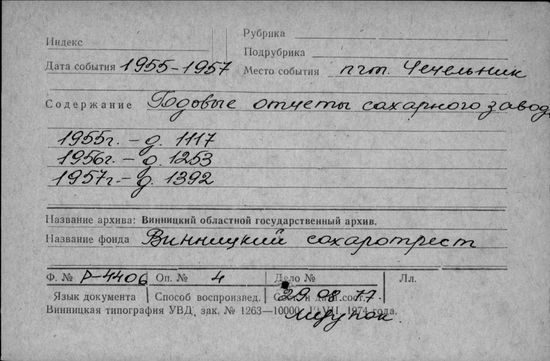 Индекс
Рубрика
Подрубрика
Дата события 1955-1957 Место события пгт. Чечельник
Содержание Годовые отчеты сахарного завод
1955г. - д. 1117
1956г. - д. 1253
1957г. - д. 1392
Название архива: Винницкий областной государственный архив.
Название фонда Винницкий сахаротрест
Ф. № Р-4406 Оп. № 4 Дело № Лл.
Язык документа Способ воспроизвед.
29 08 77
Винницкая типография УВД, зак. № 1263—10000. 1974 года.